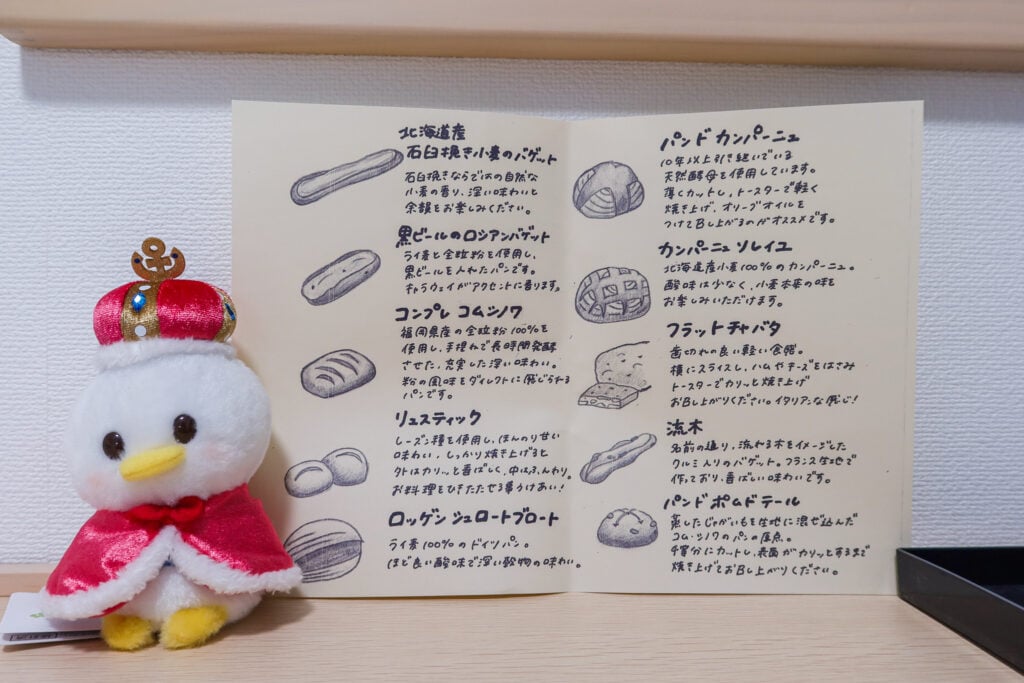 北海道産
石臼挽き小麦のバゲット
石臼挽きならではの自然な
小麦の香り、深い味わいと
余韻をお楽しみください。
黒ビールのロシアンバゲット
ライ麦と全粒粉を使用し、
黒ビールを入れたパンです。
キャラウェイがアクセントに香ります。
コンプレ コムシノワ
福岡県産の全粒粉100%を
使用し、手捏ねで長時間発酵
させた、充実した深い味わい。
粉の風味をダイレクトに感じられる
パンです。
リュスティック
レーズン種を使用し、ほんのり甘い
味わい。しっかり焼き上げると
外はカリッと香ばしく、中はふんわり。
お料理をひきたたせる事うけあい!
ロッゲンシュロートブロート
ライ麦100%のドイツパン。
ほど良い酸味で深い穀物の味わい。
パンド カンパーニュ
10年以上引き継いでいる
天然酵母を使用しています。
薄くカットし、トースターで軽く
焼き上げ、オリーブオイルを
つけて召し上がるのがオススメです。
カンパーニュ ソレイユ
北海道産小麦100%のカンパーニュ。
酸味は少なく、小麦本来の味を
お楽しみいただけます。
フラットチャバタ
歯切れの良い軽い食感。
横にスライスし、ハムやチーズをはさみ
トースターでカリッと焼き上げ
お召し上がりください。イタリアンな感じ!
流木
名前の通り、流れる木をイメージした
クルミ入りのバゲット。フランス生地で
作っており、香ばしい味わいです。
パンド ポムドテール
蒸したじゃがいもを生地に混ぜ込んだ
コム・シノワのパンの原点。
4等分にカットし、表面がカリッとするまで
焼き上げてお召し上がりください。